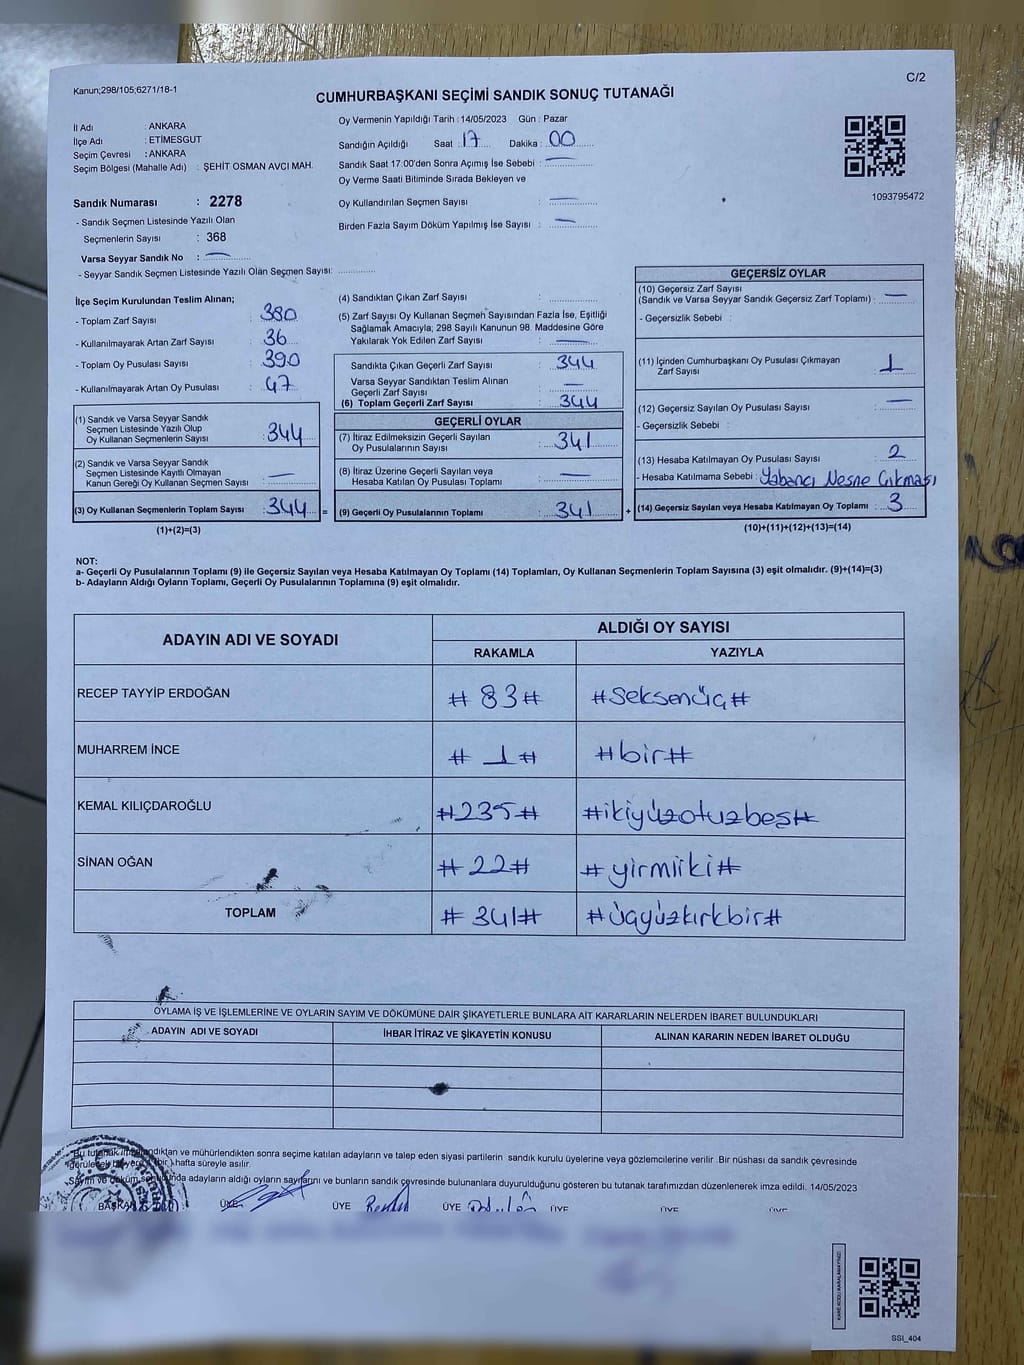 Kanun;298/105;6271/18-1
C/2
CUMHURBAŞKANI SEÇİMİ SANDIK SONUÇ TUTANAĞI
İl Adı : ANKARA
İlçe Adı : ETİMESGUT
Seçim Çevresi : ANKARA
Seçim Bölgesi (Mahalle Adı) : ŞEHİT OSMAN AVCI MAH.
Sandık Numarası : 2278
- Sandık Seçmen Listesinde Yazılı Olan
Seçmenlerin Sayısı : 368
Varsa Seyyar Sandık No : —
- Seyyar Sandık Seçmen Listesinde Yazılı Olan Seçmen Sayısı: ..............
Oy Vermenin Yapıldığı Tarih : 14/05/2023 Gün : Pazar
Sandığın Açıldığı Saat : 17 Dakika : 00
Sandık Saat 17:00'den Sonra Açımış İse Sebebi : —
Oy Verme Saati Bitiminde Sırada Bekleyen ve
Oy Kullandırılan Seçmen Sayısı : —
Birden Fazla Sayım Döküm Yapılmış İse Sayısı : —
1093795472
İlçe Seçim Kurulundan Teslim Alınan;
- Toplam Zarf Sayısı : 380
- Kullanılmayarak Artan Zarf Sayısı : 36
- Toplam Oy Pusulası Sayısı : 390
- Kullanılmayarak Artan Oy Pusulası : 47
(1) Sandık ve Varsa Seyyar Sandık
Seçmen Listesinde Yazılı Olup
Oy Kullanan Seçmenlerin Sayısı : 344
(2) Sandık ve Varsa Seyyar Sandık
Seçmen Listesinde Kayıtlı Olmayan
Kanun Gereği Oy Kullanan Seçmen Sayısı : —
(3) Oy Kullanan Seçmenlerin Toplam Sayısı : 344 =
(1)+(2)=(3)
(4) Sandıktan Çıkan Zarf Sayısı : ..............
(5) Zarf Sayısı Oy Kullanan Seçmen Sayısından Fazla İse, Eşitliği
Sağlamak Amacıyla; 298 Sayılı Kanunun 98. Maddesine Göre
Yakılarak Yok Edilen Zarf Sayısı : —
Sandıkta Çıkan Geçerli Zarf Sayısı : 344
Varsa Seyyar Sandıktan Teslim Alınan
Geçerli Zarf Sayısı : —
(6) Toplam Geçerli Zarf Sayısı : 344
GEÇERLİ OYLAR
(7) İtiraz Edilmeksizin Geçerli Sayılan
Oy Pusulalarının Sayısı : 341
(8) İtiraz Üzerine Geçerli Sayılan veya
Hesaba Katılan Oy Pusulası Toplamı : —
(9) Geçerli Oy Pusulalarının Toplamı : 341 +
GEÇERSİZ OYLAR
(10) Geçersiz Zarf Sayısı
(Sandık ve Varsa Seyyar Sandık Geçersiz Zarf Toplamı) : —
- Geçersizlik Sebebi :
(11) İçinden Cumhurbaşkanı Oy Pusulası Çıkmayan
Zarf Sayısı : 1
(12) Geçersiz Sayılan Oy Pusulası Sayısı : —
- Geçersizlik Sebebi :
(13) Hesaba Katılmayan Oy Pusulası Sayısı : 2
- Hesaba Katılmama Sebebi : Yabancı Nesne Çıkması
(14) Geçersiz Sayılan veya Hesaba Katılmayan Oy Toplamı : 3
(10)+(11)+(12)+(13)=(14)
NOT:
a- Geçerli Oy Pusulalarının Toplamı (9) ile Geçersiz Sayılan veya Hesaba Katılmayan Oy Toplamı (14) Toplamları, Oy Kullanan Seçmenlerin Toplam Sayısına (3) eşit olmalıdır. (9)+(14)=(3)
b- Adayların Aldığı Oyların Toplamı, Geçerli Oy Pusulalarının Toplamına (9) eşit olmalıdır.
ADAYIN ADI VE SOYADI ALDIĞI OY SAYISI
RAKAMLA YAZIYLA
RECEP TAYYİP ERDOĞAN # 83 # #seksenüç#
MUHARREM İNCE # 1 # #bir#
KEMAL KILIÇDAROĞLU #235# #ikiyüzotuzbeş#
SİNAN OĞAN # 22# # yirmiiki#
TOPLAM # 341# #üçyüzkırkbir#
OYLAMA İŞ VE İŞLEMLERİNE VE OYLARIN SAYIM VE DÖKÜMÜNE DAİR ŞİKAYETLERLE BUNLARA AİT KARARLARIN NELERDEN İBARET BULUNDUKLARI
ADAYIN ADI VE SOYADI İHBAR İTİRAZ VE ŞİKAYETİN KONUSU ALINAN KARARIN NEDEN İBARET OLDUĞU
Bu tutanak ve mühürlendikten sonra seçime katılan adayların ve talep eden siyasi partilerin sandık kurulu üyelerine veya gözlemcilerine verilir .Bir nüshası da sandık çevresinde
hafta süreyle asılır.
Sayım ve döküm adayların aldığı oyların sayılarını ve bunların sandık çevresinde bulunanlara duyurulduğunu gösteren bu tutanak tarafımızdan düzenlenerek imza edildi. 14/05/2023
BAŞKAN ÜYE ÜYE ÜYE ÜYE ÜYE ÜYE
SSI_404